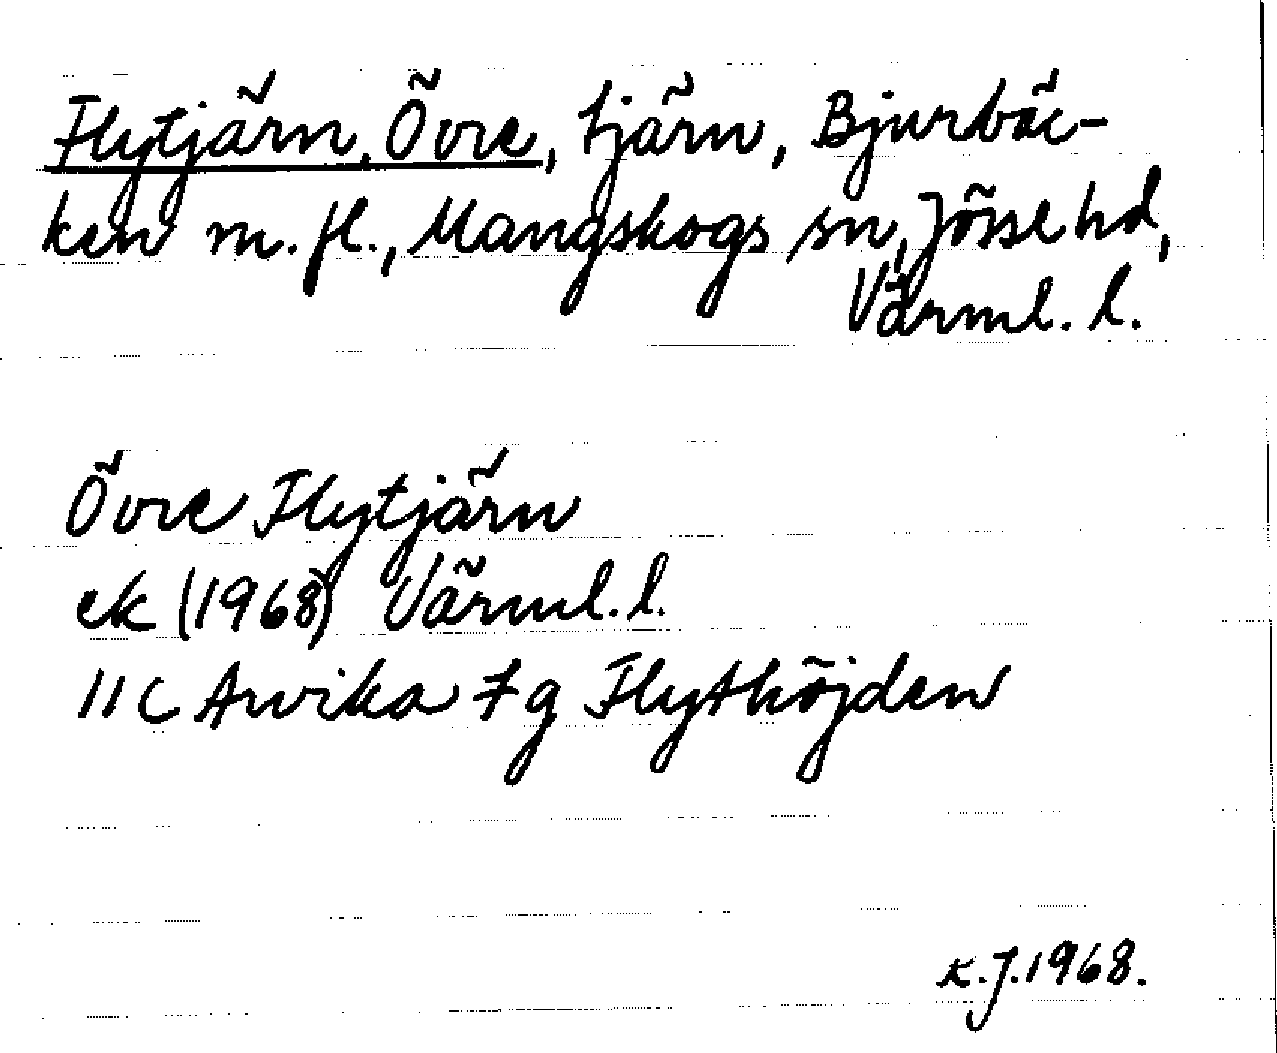 Flytjärn, Övre, tjärn, Bjurbäc-
ken m.fl., Mangskogs sn, Jösse hd,
Värml. l.
Övre Flytjärn
ek (1968) Värml. l.
11 C Arvika 7 g Flythöjden
K.J. 1968.